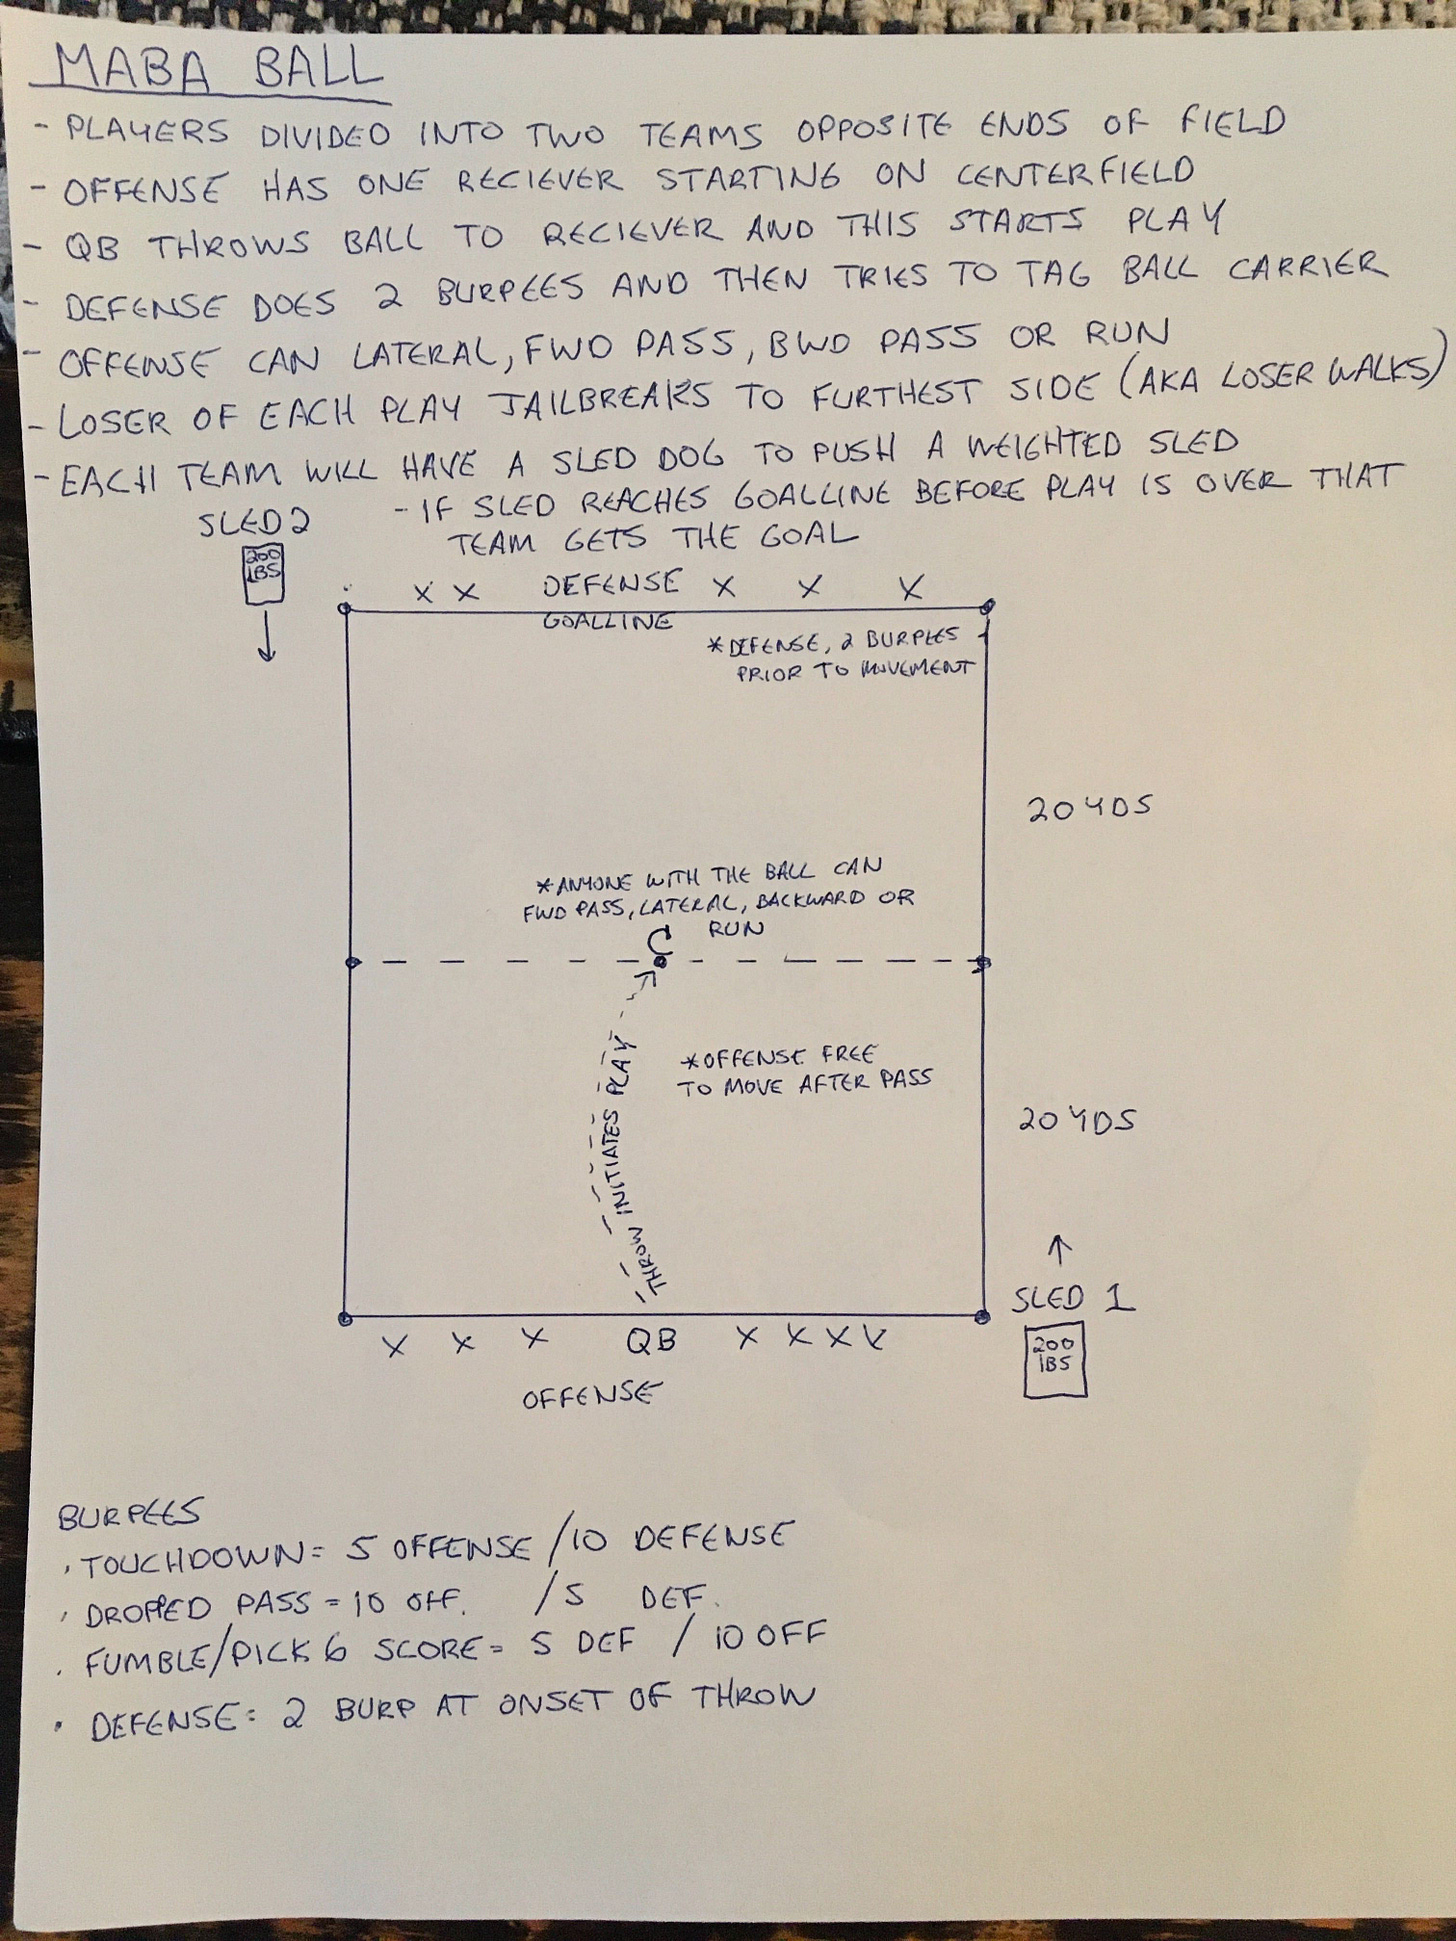 MABA BALL
- PLAYERS DIVIDED INTO TWO TEAMS OPPOSITE ENDS OF FIELD
- OFFENSE HAS ONE RECIEVER STARTING ON CENTERFIELD
- QB THROWS BALL TO RECIEVER AND THIS STARTS PLAY
- DEFENSE DOES 2 BURPEES AND THEN TRIES TO TAG BALL CARRIER
- OFFENSE CAN LATERAL, FWD PASS, BWD PASS OR RUN
- LOSER OF EACH PLAY JAILBREAKS TO FURTHEST SIDE (AKA LOSER WALKS)
- EACH TEAM WILL HAVE A SLED DOG TO PUSH A WEIGHTED SLED
- IF SLED REACHES GOALLINE BEFORE PLAY IS OVER THAT
TEAM GETS THE GOAL
SLED 2
200
LBS
X X DEFENSE X X X
GOALLINE
*DEFENSE, 2 BURPEES
PRIOR TO MOVEMENT
20 YDS
*ANYONE WITH THE BALL CAN
FWD PASS, LATERAL, BACKWARD OR
RUN
C
THROW INITIATES PLAY
*OFFENSE FREE
TO MOVE AFTER PASS
20 YDS
SLED 1
200
LBS
X X X QB X X X X
OFFENSE
BURPEES
. TOUCHDOWN = 5 OFFENSE / 10 DEFENSE
. DROPPED PASS = 10 OFF. / 5 DEF.
. FUMBLE/PICK 6 SCORE = 5 DEF / 10 OFF
. DEFENSE: 2 BURP AT ONSET OF THROW